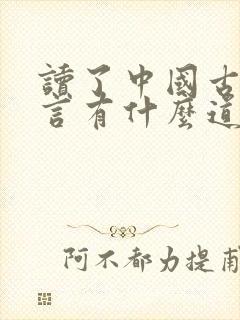 讀了中國古
言有什麼道
阿不都力提甫